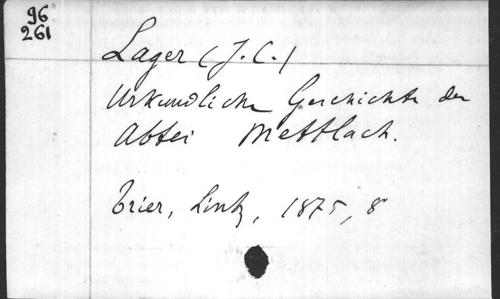 96
261
Lager (J. C.)
Urkundliche Geschichte der
Abtei Mettlach.
Trier, Lintz, 1875, 8°